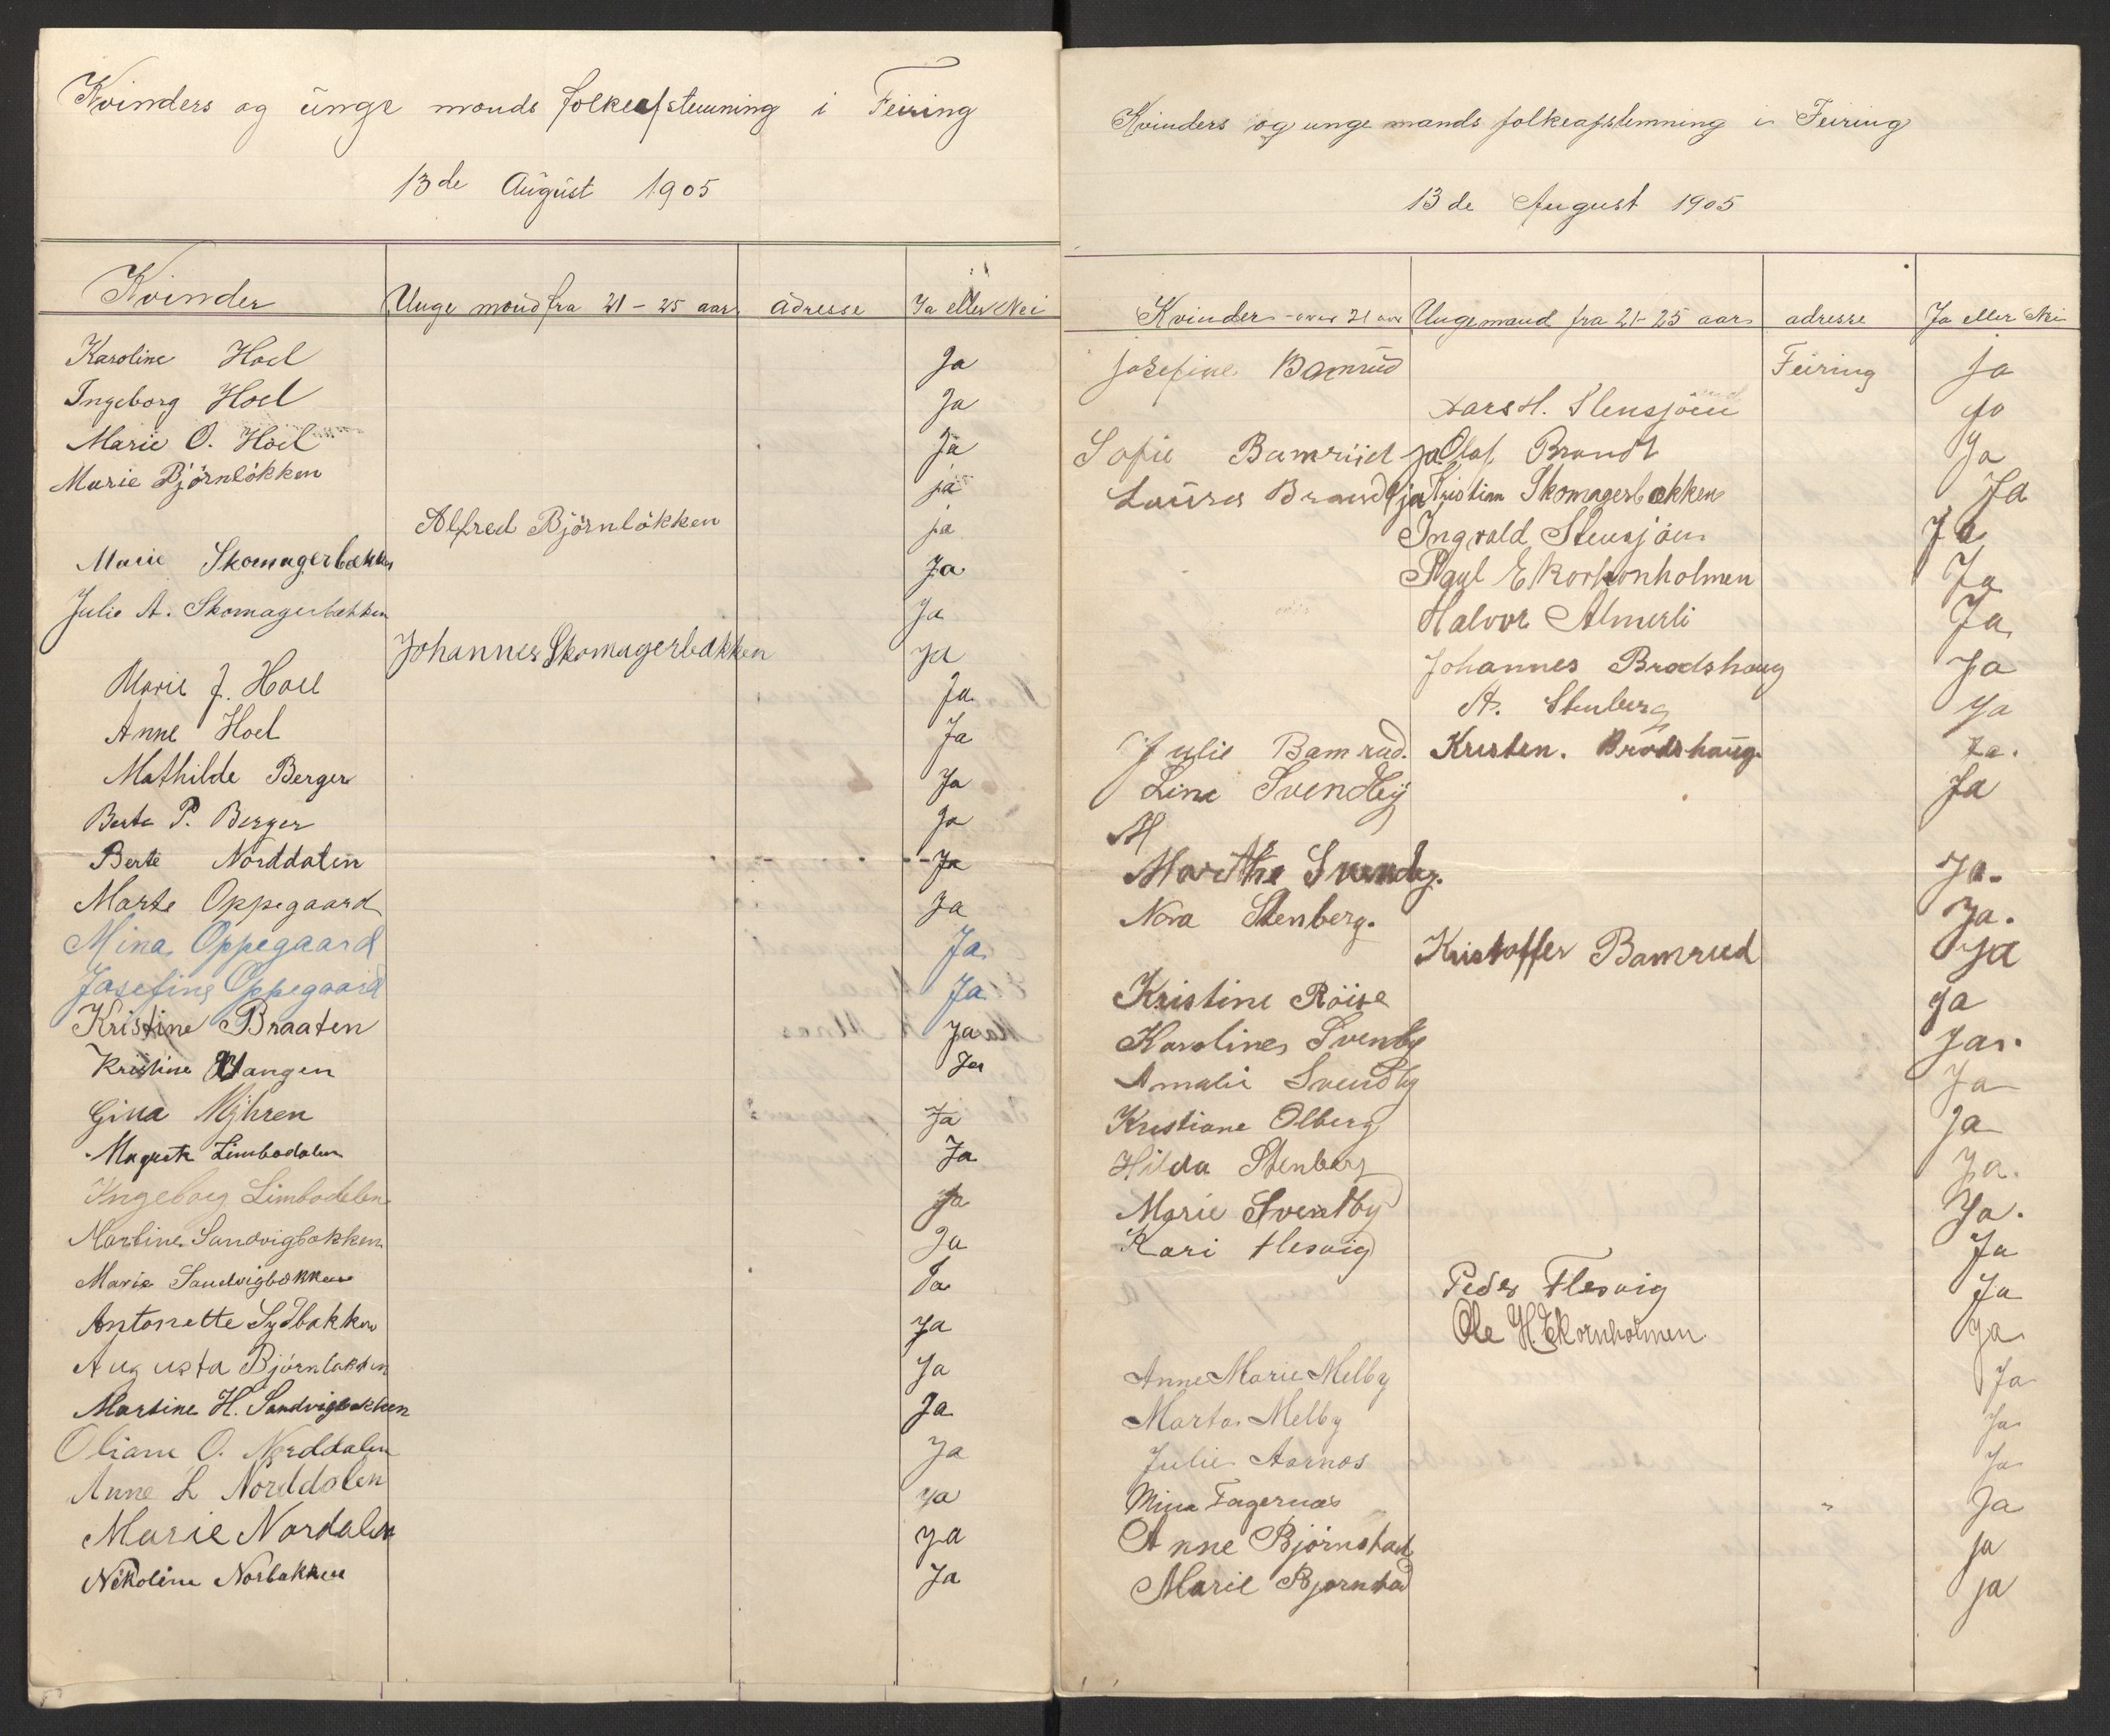 Kvinders og unge mands folkeafstemning i Feiring
13de August 1905
Kvinder Unge mand fra 21-25 aar adresse Ja eller Nei
Karoline Hoel Ja
Ingeborg Hoel Ja
Marie O. Hoel Ja
Marie Björnlökken ja
Alfred Björnlökken ja
Marie Skomagerbækken Ja
Julie A. Skomagerbækken Ja
Johannes Skomagerbækken Ja
Marie J. Hoel Ja
Anne Hoel Ja
Mathilde Berger Ja
Berte P. Berger Ja
Berte Norddalen Ja
Marte Oppegaard Ja
Mina Oppegaard Ja
Josefine Oppegaard Ja
Kristine Braaten Ja
Kristine Vangen Ja
Gina Myhren Ja
Magrete Limbodalen Ja
Ingeborg Limbodalen Ja
Martine Sandvigbakken Ja
Marie Sandvigbakken Ja
Antonette Sydbakken Ja
Augusta Björnlökken Ja
Martine H. Sandvigbakken Ja
Oliane O. Norddalen Ja
Anne L Norddalen Ja
Marie Nordalen Ja
Nikoline Norbakken Ja
Kvinders og unge mands folkeafstemning i Feiring
13 de August 1905
Kvinder - over 21 aar Unge mand fra 21-25 aar adresse Ja eller Nei
Josefine Bamrud Feiring ja
Lars H. Stensjöen ja
Sofie Bamrud ja Olaf Brandt Ja
Laura Brandt ja Kristian Skomagerbækken Ja
Ingvald Stensjöen Ja
Paul Ekornholmen Ja
Halvor Almerli Ja
Johannes Brodshaug Ja
A. Stenberg Ja
Julie Bamrud. Kristen. Brodshaug. Ja.
Lina Svendby Ja
M
Marthe Svendby. Ja.
Nora Stenberg. Ja.
Kristoffer Bamrud Ja
Kristine Röise Ja
Karoline Svenby Ja.
Amalie Svendby Ja
Kristiane Olberg Ja
Hilda Stenberg Ja.
Marie Svendby Ja.
Kari Flesvig Ja
Peder Flesvig Ja
Ole H. Ekornholmen Ja
Anne Marie Melby Ja
Marta Melby Ja
Julie Aarnæs Ja
Mina Fagernæs " Ja
Anne Bjørnstad ja
Marie Bjornstad ja